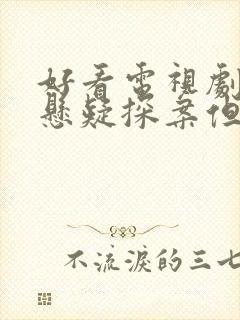 好看電視劇
懸疑探案但
不流淚的三七